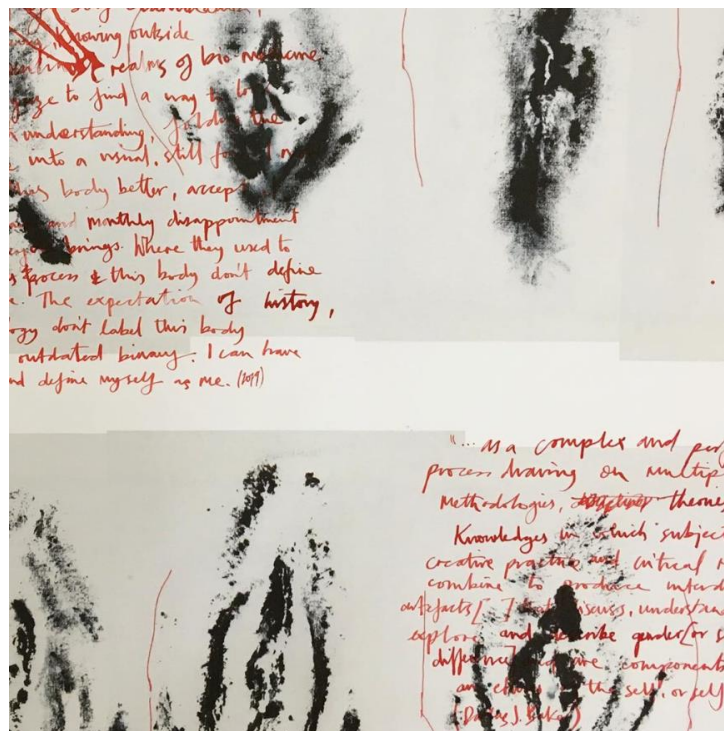 Knowing outside
realms of bio medicine
gaze to find a way to
understanding, folding the
into a visual, still
this body better, accept
and monthly disappointment
brings. Where they used to
process & this body don't define
e. The expectation of history,
ogy don't label this body
outdated binary. I can have
nd define myself as me. (2019)
"... as a complex and per
process drawing on multip
methodologies, theories
Knowledges in which subject
creative practice and critical r
combine to produce
artefacts [ ] that discuss, understan
explore and describe gender [or s
difference] are components
an of the self, or self
(Darius J. Baker)